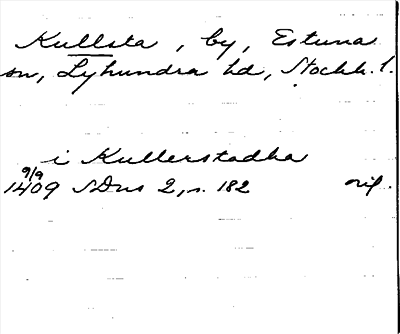 Kullsta, by, Estuna
sn, Lyhundra hd, Stockh. l.
i Kullerstadha
9/9
1409 SDns 2, s. 182 orig.